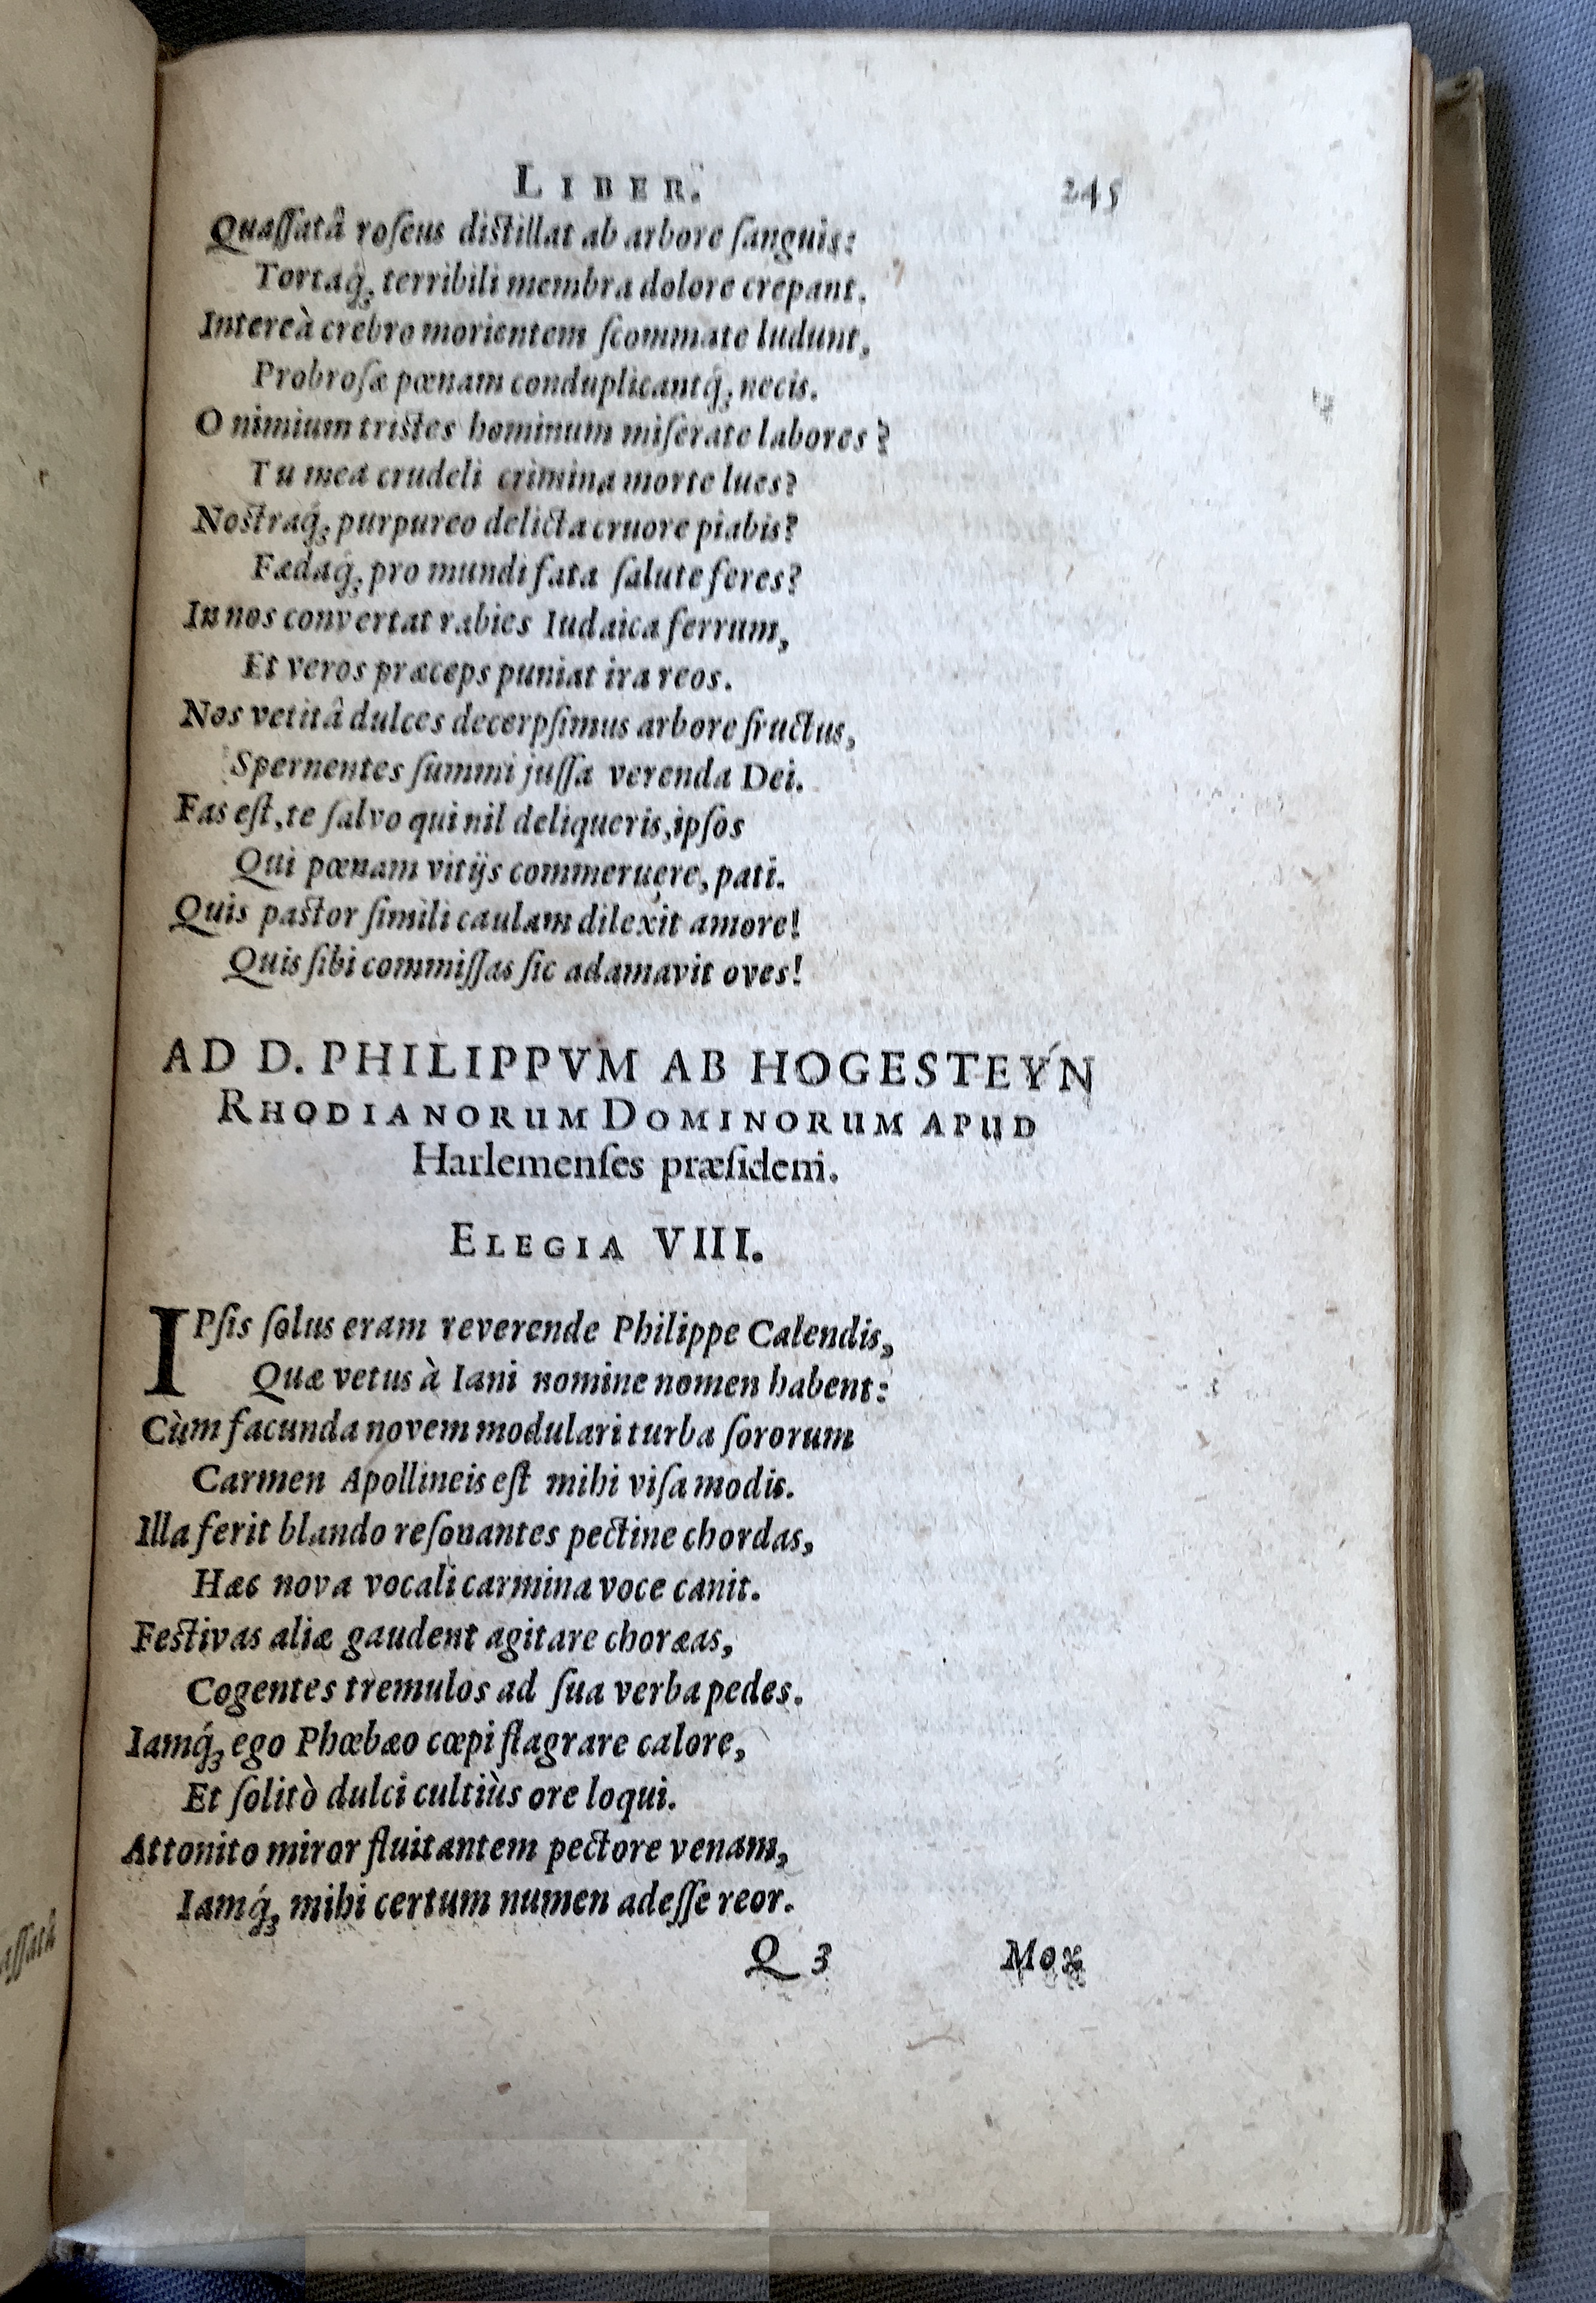 LIBER. 245
Quaſſatâ roſeus diſtillat ab arbore ſanguis:
Tortaq́; terribili membra dolore crepant.
Intereà crebro morientem ſcommate ludunt,
Probroſæ pœnam conduplicantq́; necis.
O nimium triſtes hominum miſerate labores?
Tu mea crudeli crimina morte lues?
Noſtraq́; purpureo delicta cruore piabis?
Fædaq́; pro mundi fata ſalute feres?
In nos convertat rabies Iudaica ferrum,
Et veros præceps puniat ira reos.
Nos vetitâ dulces decerpſimus arbore fructus,
Spernentes ſummi juſſa verenda Dei.
Fas eſt, te ſalvo qui nil deliqueris, ipſos
Qui pœnam vitijs commeruere, pati.
Quis paſtor ſimili caulam dilexit amore!
Quis ſibi commiſſas ſic adamavit oves!
AD D. PHILIPPVM AB HOGESTEYN
RHODIANORUM DOMINORUM APUD
Harlemenſes præſidem.
ELEGIA VIII.
IPſis ſolus eram reverende Philippe Calendis,
Quæ vetus à Iani nomine nomen habent:
Cùm facunda novem modulari turba ſororum
Carmen Apollineis eſt mihi viſa modis.
Illa ferit blando reſonantes pectine chordas,
Hæc nova vocali carmina voce canit.
Feſtivas aliæ gaudent agitare choræas,
Cogentes tremulos ad ſua verba pedes.
Iamq́; ego Phœbæo cœpi flagrare calore,
Et ſolitò dulci cultiùs ore loqui.
Attonito miror fluitantem pectore venam,
Iamq́; mihi certum numen adeſſe reor.
Q 3 Mox
aſſatâ